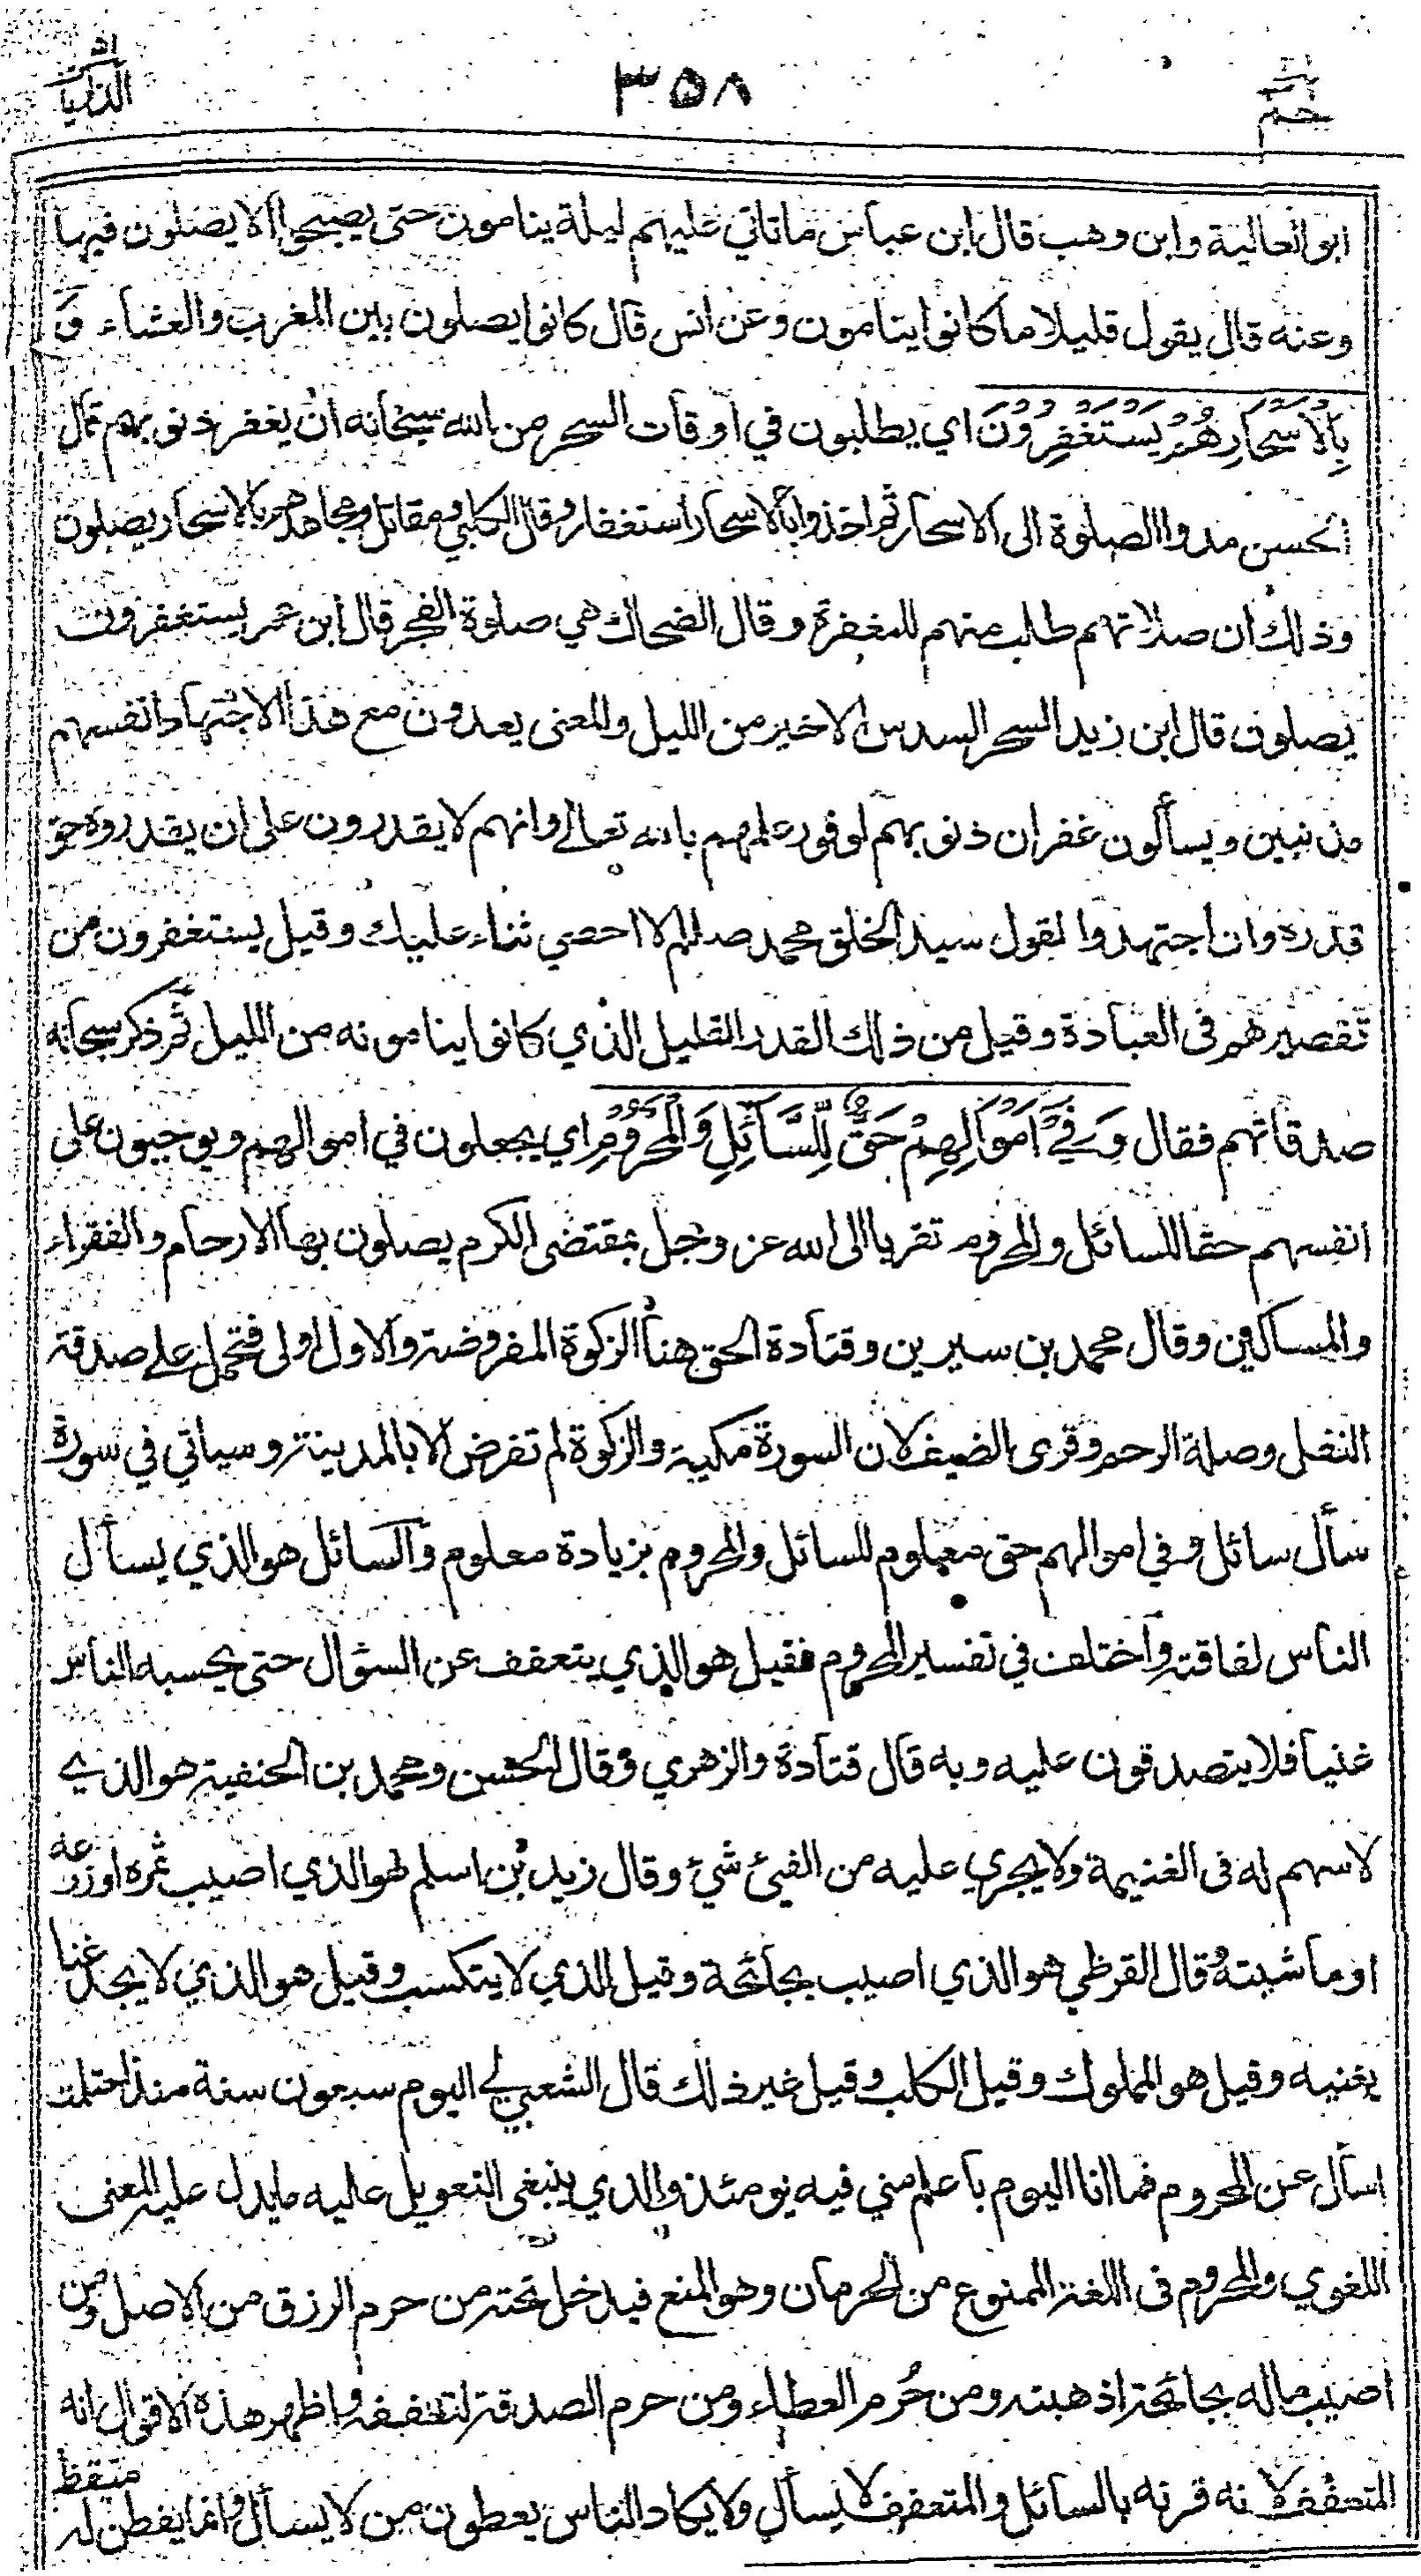 حم ٣٥٨ الذاريات
ابو العالية وابن وهب قال ابن عباس ما تاتي عليهم ليلة ينامون حتى يصبحوا الا يصلون فيها
وعنه قال يقول قليلا ما كانوا ينامون وعن انس قال كانوا يصلون بين المغرب والعشاء وَ
بِالْاَسْحَارِ هُمْ يَسْتَغْفِرُوْنَ اي يطلبون في اوقات السحر من الله سبحانه ان يغفر ذنوبهم قال
الحسن مدوا الصلوة الى الاسحار ثم اخذوا بالاسحار استغفار وقال الكلبي ومقاتل ومجاهد هم بالاسحار يصلون
وذلك ان صلاتهم طلب منهم للمغفرة وقال الضحاك هي صلوة الفجر قال ابن عمر يستغفرون
يصلون قال ابن زيد السحر السدس الاخير من الليل والمعنى يعدون مع هذا الاجتهاد انفسهم
مذنبين ويسألون غفران ذنوبهم لوفور علمهم بالله تعالى وانهم لا يقدرون على ان يقدروه حق
قدره وان اجتهدوا لقول سيد الخلق محمد صللم لا احصي ثناء عليك وقيل يستغفرون من
تقصيرهم في العبادة وقيل من ذلك القدر القليل الذي كانوا ينامونه من الليل ثم ذكر سبحانه
صدقاتهم فقال وَفِيْ اَمْوَالِهِمْ حَقٌّ لِّلسَّآئِلِ وَالْمَحْرُوْمِ اي يجعلون في اموالهم ويوجبون على
انفسهم حقا للسائل والمحروم تقربا الى الله عز وجل بمقتضى الكرم يصلون بها الارحام والفقراء
والمساكين وقال محمد بن سيرين وقتادة الحق هنا الزكوة المفروضة والاول اولى فتحمل على صدقة
النفل وصلة الرحم وقرى الضيف لان السورة مكية والزكوة لم تفرض الا بالمدينة وسياتي في سورة
سأل سائل وفي اموالهم حق معلوم للسائل والمحروم بزيادة معلوم والسائل هو الذي يسأل
الناس لفاقته واختلف في تفسير المحروم فقيل هو الذي يتعفف عن السؤال حتى يحسبه الناس
غنيا فلا يتصدقون عليه وبه قال قتادة والزهري وقال الحسن ومحمد بن الحنفية هو الذي
لا سهم له في الغنيمة ولا يجري عليه من الفيئ شيئ وقال زيد بن اسلم هو الذي اصيب ثمره او زرعه
او ماشيته قال القرظي هو الذي اصيب بجائحة وقيل الذي لا يتكسب وقيل هو الذي لا يجد غنا
يغنيه وقيل هو المملوك وقيل الكلب وقيل غير ذلك قال الشعبي لي اليوم سبعون سنة منذ احتلمت
اسأل عن المحروم فما انا اليوم باعلم مني فيه يومئذ والذي ينبغي التعويل عليه ما يدل عليه المعنى
اللغوي والمحروم في اللغة الممنوع من الحرمان وهو المنع فيدخل تحته من حرم الرزق من الاصل ومن
اصيب ماله بجائحة اذهبته ومن حُرم العطاء ومن حرم الصدقة لتعففه واظهر هذه الاقوال انه
المتعفف لانه قرنه بالسائل والمتعفف لا يسأل ولا يكاد الناس يعطون من لا يسأل وانما يفطن له متيقظ